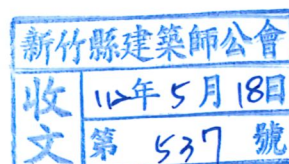 新竹縣建築師公會
收文
112年5月18日
第 537 號